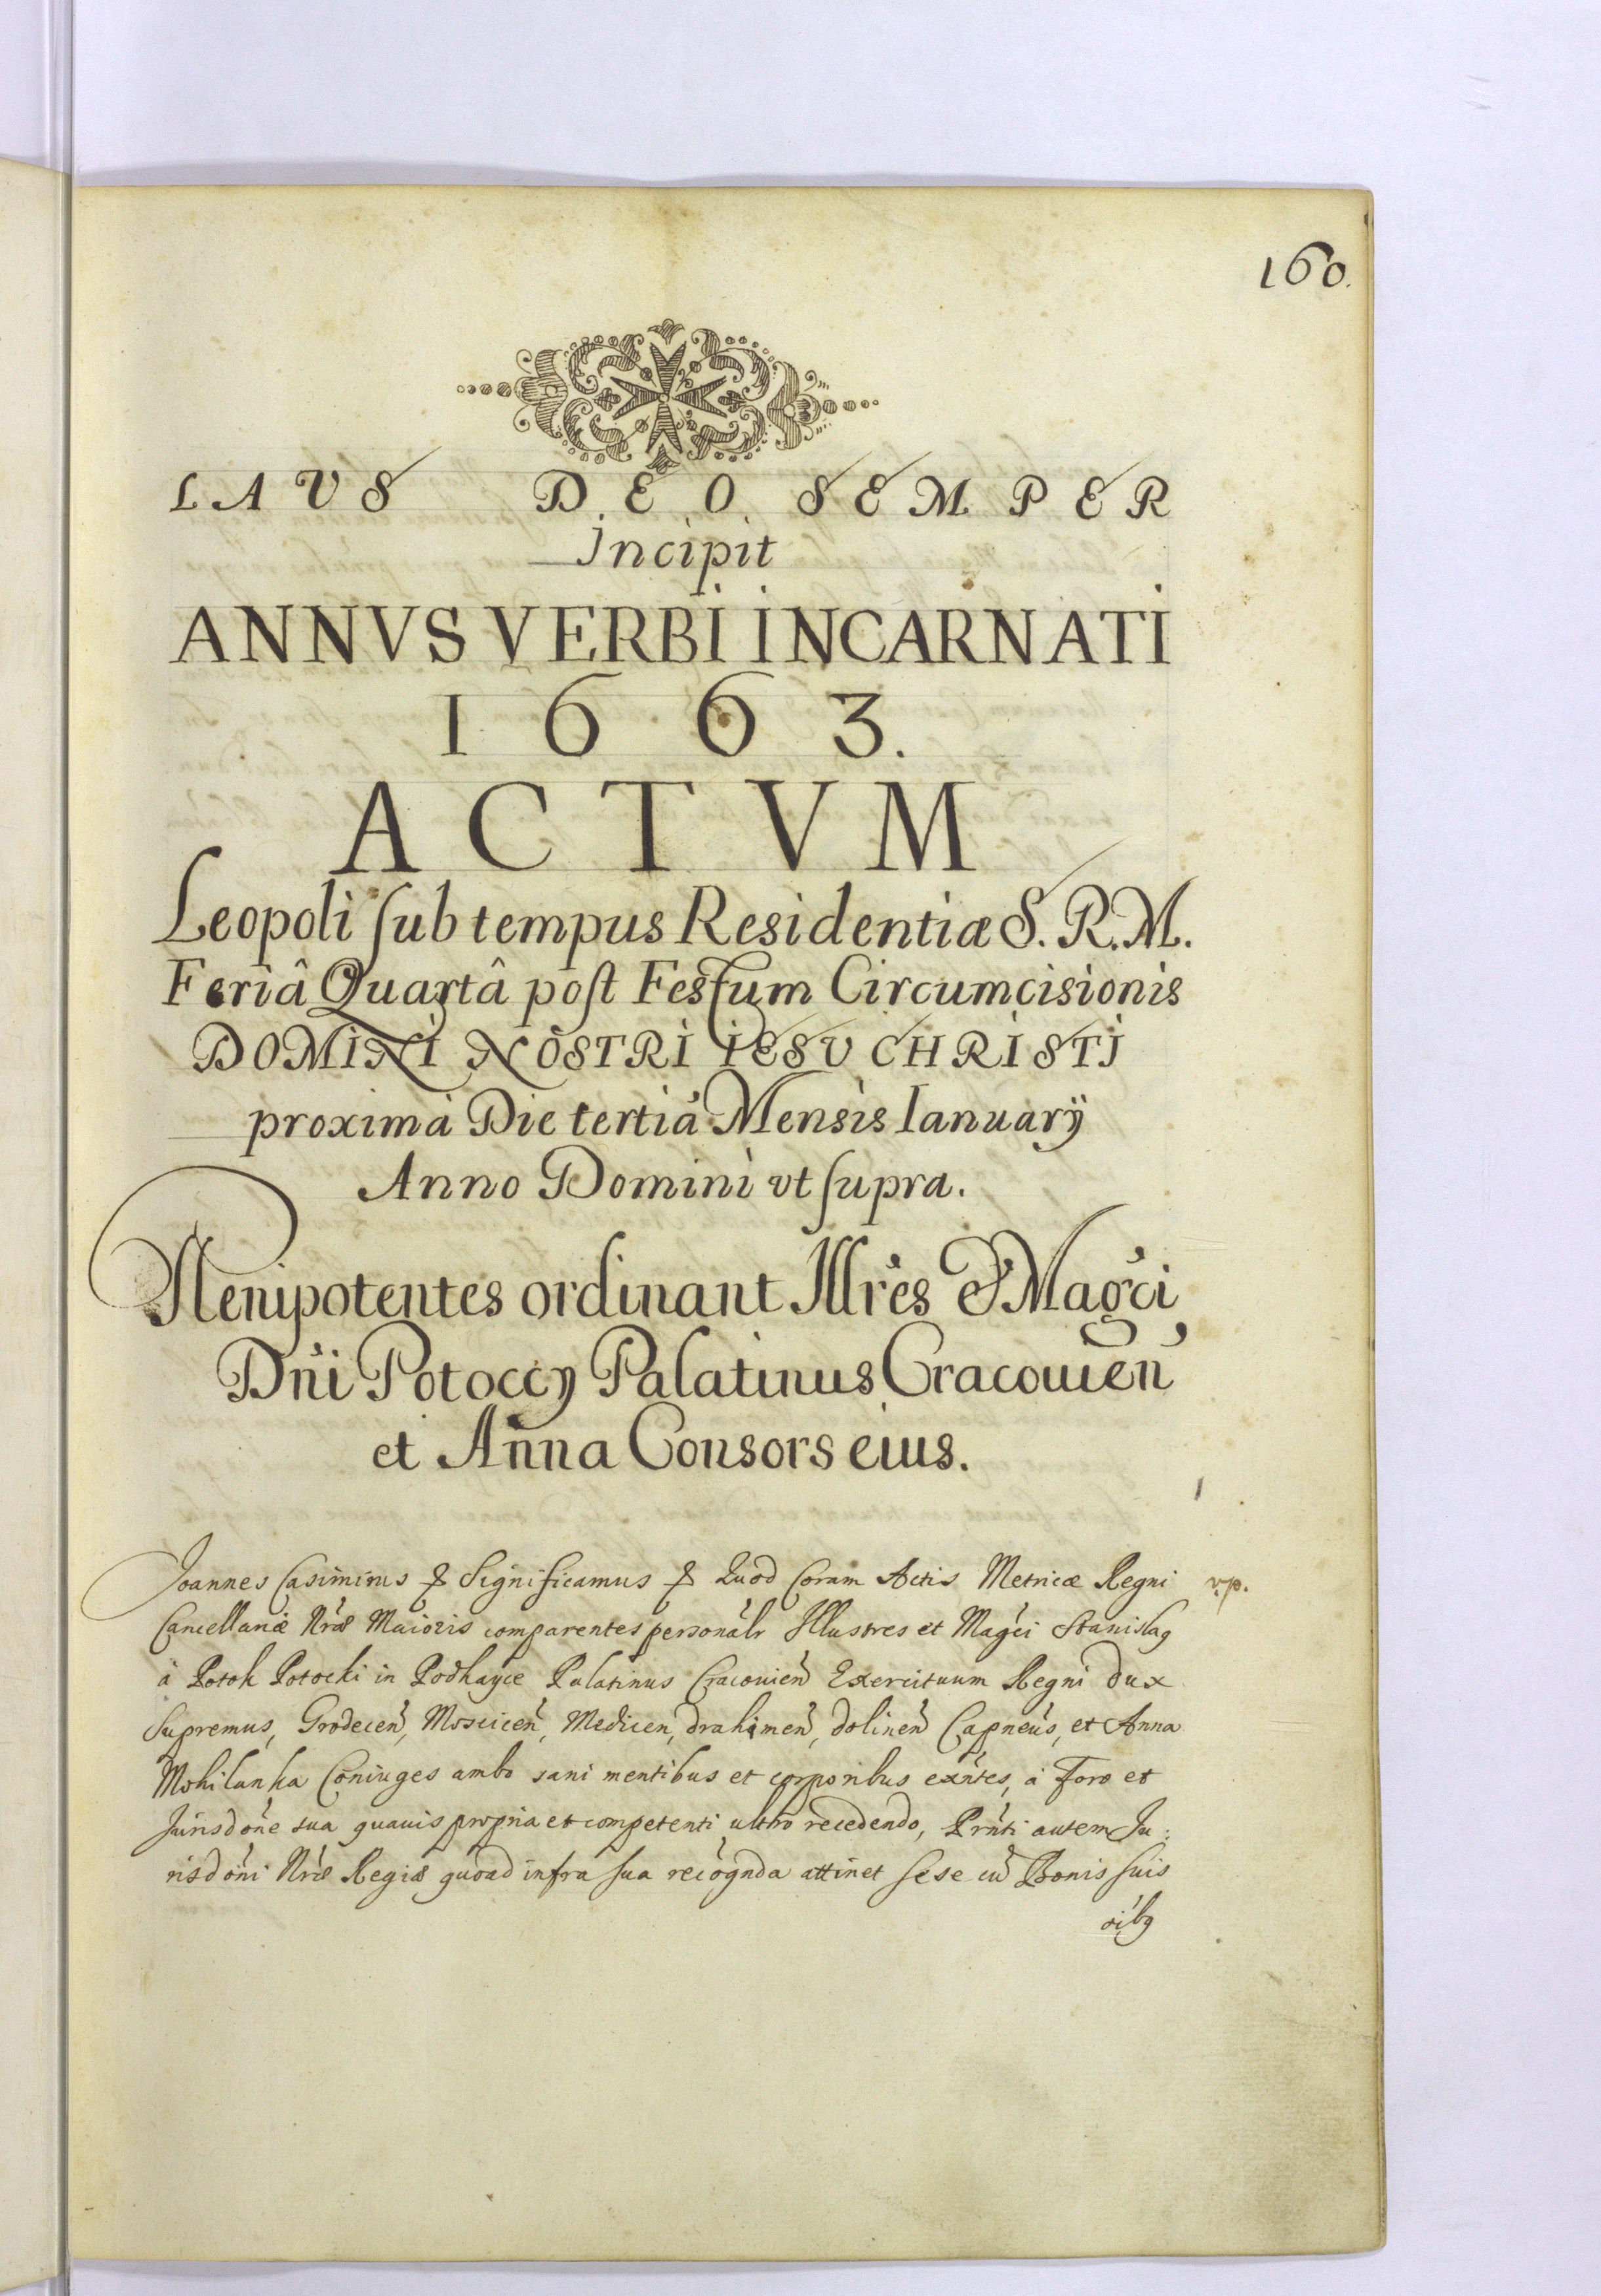 160.
LAVS DEO SEMPER
Incipit
ANNVS VERBI INCARNATI
1663.
ACTVM
Leopoli sub tempus Residentiæ S. R. M.
Feriâ Quartâ post Festum Circumcisionis
DOMINI NOSTRI IESV CHRISTI
proximà Die tertià Mensis Ianuarÿ
Anno Domini vt supra.
Plenipotentes ordinant Illres & Magci
Dni Potoccy Palatinus Cracouien
et Anna Consors eius.
1
Joannes Casimirus & Significamus & Quod Coram Actis Metricæ Regni
v.p.
Cancellariæ Nræ Maioris comparentes personalr Illustres et Magci Stanislaq
à Potok Potocki in Podhayce Palatinus Cracouien Exercituum Regni dux
Supremus, Grodecen, Moscicen, Medicen, drahimen, dolinen Capneus, et Anna
Mohilanka Coniuges ambo sani mentibus et corporibus exntes, à Foro et
Jurisdone sua quauis propria et competenti ultro recedendo, Prnti autem Ju:
risdoni Nræ Regiæ quoad infra sua recognda attinet sese cu Bonis suis
oibq